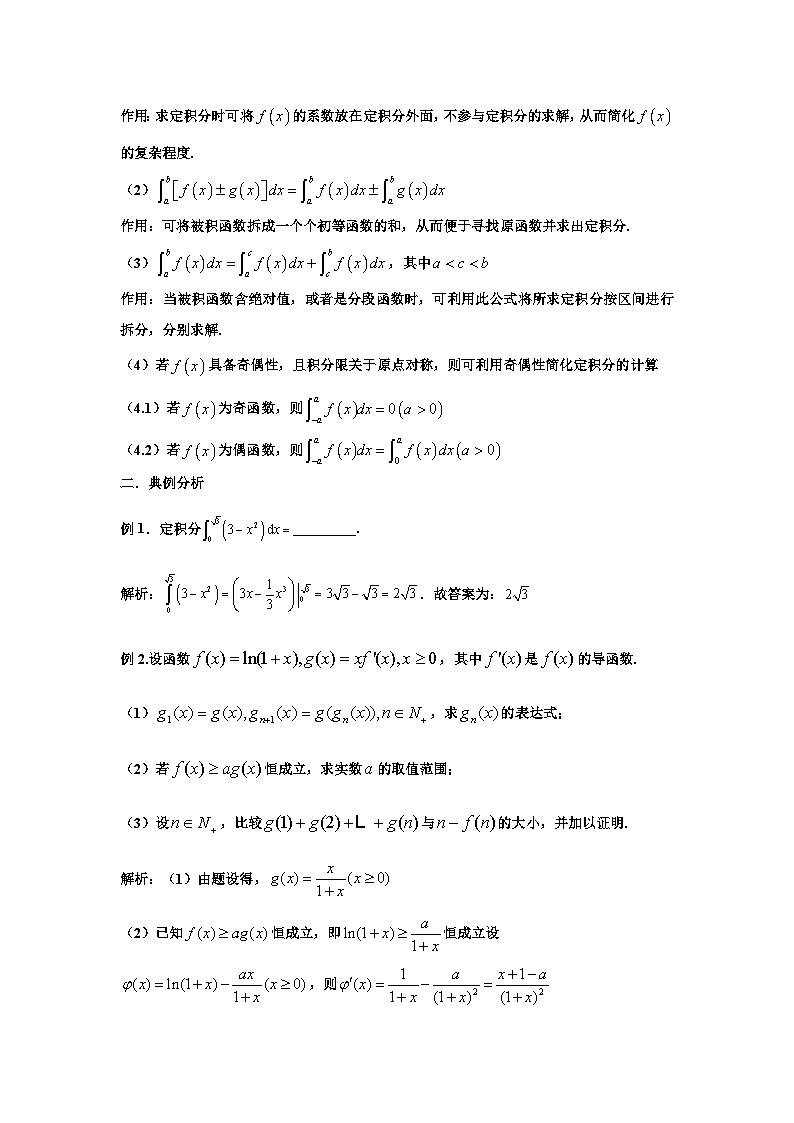 作用：求定积分时可将 f(x) 的系数放在定积分外面，不参与定积分的求解，从而简化 f(x)
的复杂程度.
（2）∫_a^b [f(x)±g(x)]dx = ∫_a^b f(x)dx ± ∫_a^b g(x)dx
作用：可将被积函数拆成一个个初等函数的和，从而便于寻找原函数并求出定积分.
（3）∫_a^b f(x)dx = ∫_a^c f(x)dx + ∫_c^b f(x)dx，其中 a < c < b
作用：当被积函数含绝对值，或者是分段函数时，可利用此公式将所求定积分按区间进行
拆分，分别求解.
（4）若 f(x) 具备奇偶性，且积分限关于原点对称，则可利用奇偶性简化定积分的计算
（4.1）若 f(x) 为奇函数，则 ∫_{-a}^a f(x)dx = 0(a > 0)
（4.2）若 f(x) 为偶函数，则 ∫_{-a}^a f(x)dx = ∫_0^a f(x)dx(a > 0)
二．典例分析
例1．定积分 ∫_0^{√3} (3−x²)dx = _________.
解析：∫_0^{√3} (3−x²) = (3x − 1/3 x³)|_0^{√3} = 3√3 − √3 = 2√3．故答案为：2√3
例2.设函数 f(x) = ln(1+x), g(x) = xf'(x), x ≥ 0，其中 f'(x) 是 f(x) 的导函数.
（1）g₁(x) = g(x), g_{n+1}(x) = g(g_n(x)), n ∈ N₊，求 g_n(x) 的表达式；
（2）若 f(x) ≥ ag(x) 恒成立，求实数 a 的取值范围；
（3）设 n ∈ N₊，比较 g(1) + g(2) + L + g(n) 与 n − f(n) 的大小，并加以证明.
解析：（1）由题设得，g(x) = x/(1+x) (x ≥ 0)
（2）已知 f(x) ≥ ag(x) 恒成立，即 ln(1+x) ≥ a/(1+x) 恒成立设
φ(x) = ln(1+x) − ax/(1+x) (x ≥ 0)，则 φ'(x) = 1/(1+x) − a/(1+x)² = (x+1−a)/(1+x)²